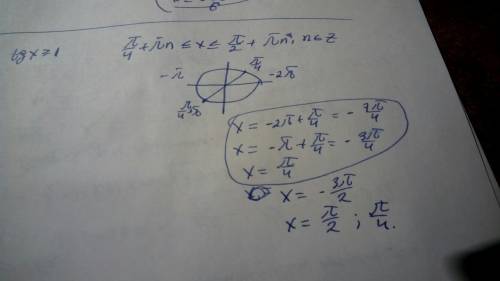 tg x ≥ 1 π/4 + πn ≤ x ≤ π/2 + πn, n ∈ Z
π/4
-π -2π
x = -2π + π/4 = - 7π/4
x = -π + π/4 = - 3π/4
x = π/4
x = - 3π/2
x = π/2 ; π/4.